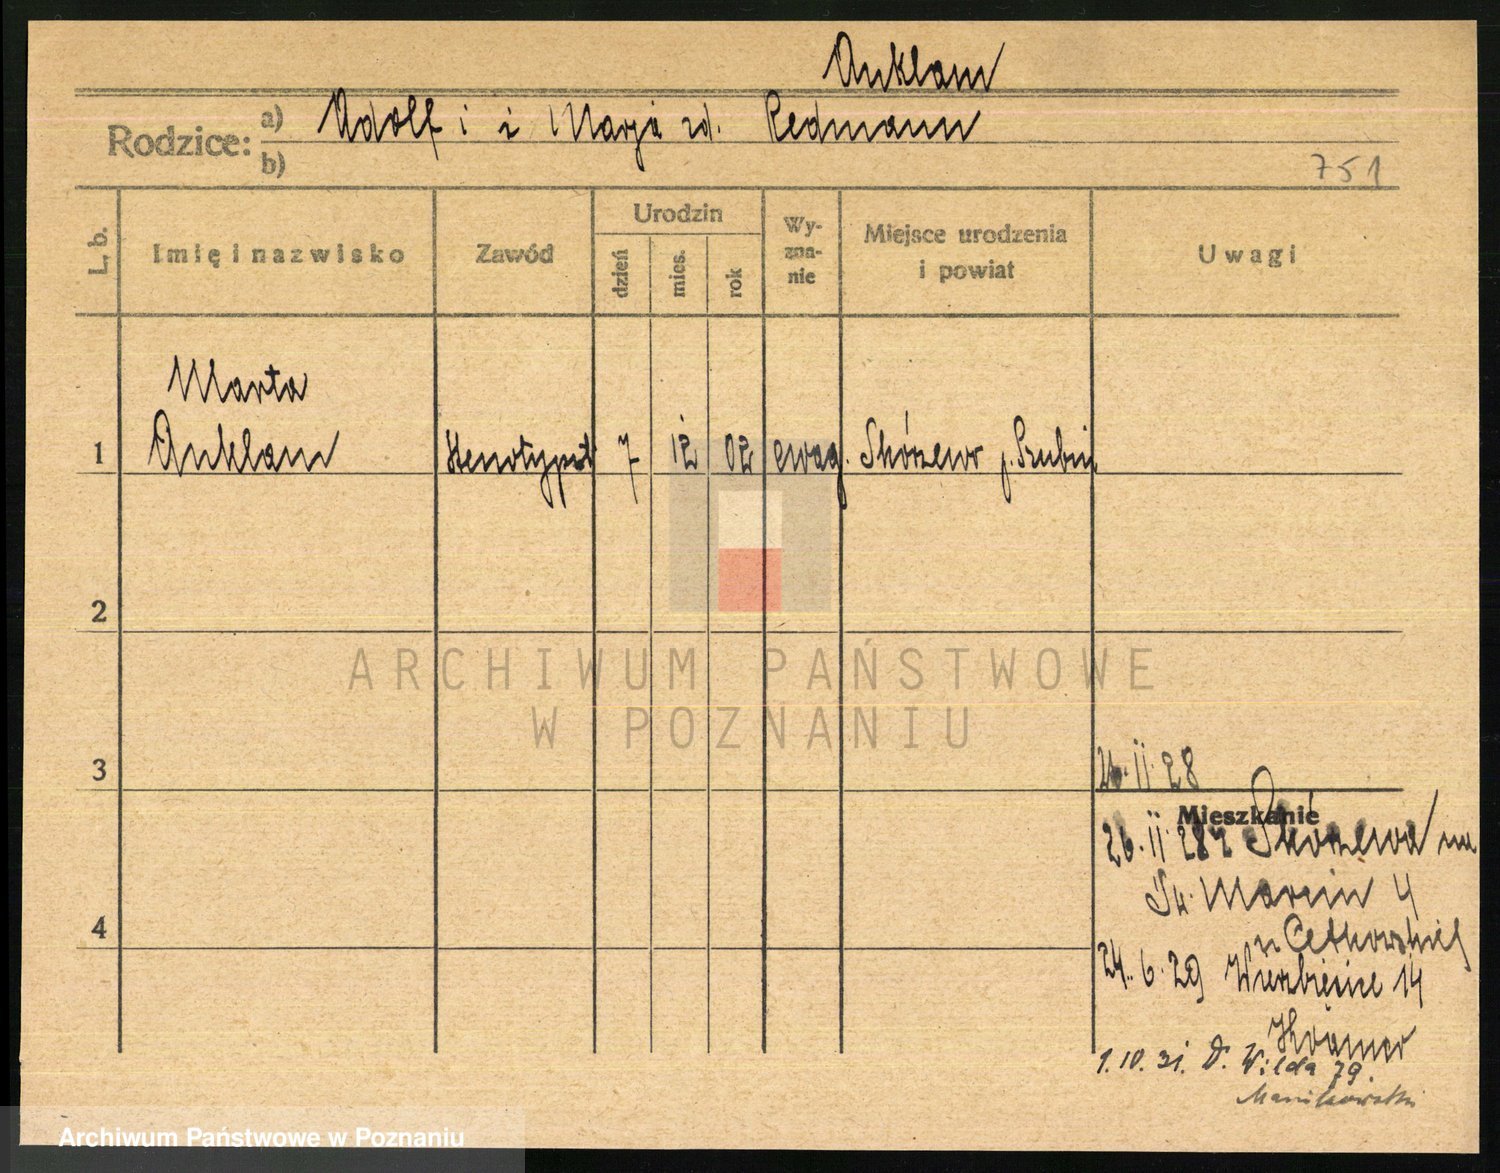 Anklam
Rodzice: a) Adolf i Marja zd. Redmann
b)
751
L. b.
Imię i nazwisko
Zawód
Urodzin
dzień
mies.
rok
Wy-
zna-
nie
Miejsce urodzenia
i powiat
Uwagi
Marta
1 Anklam stenotypist 7 12 02 ewag. Skórzewo p. Szubin
2
ARCHIWUM PAŃSTWOWE
W POZNANIU
3
26.II.28
Mieszkanie
26.II.28 z Skórzewa na
Św. Marcin 4
u Cetkowskiej
4
24.6.29 Wierzbięcice 14
Krämer
1.10.31. D. Wilda 79.
Manikowski
Archiwum Państwowe w Poznaniu